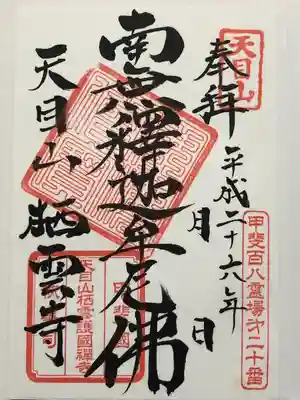 天目山
奉拝
平成二十六年 月 日
甲斐百八霊場第二十番
南無釋迦牟尼佛
天目山 栖雲寺
甲斐國
天目山栖雲護國禅寺